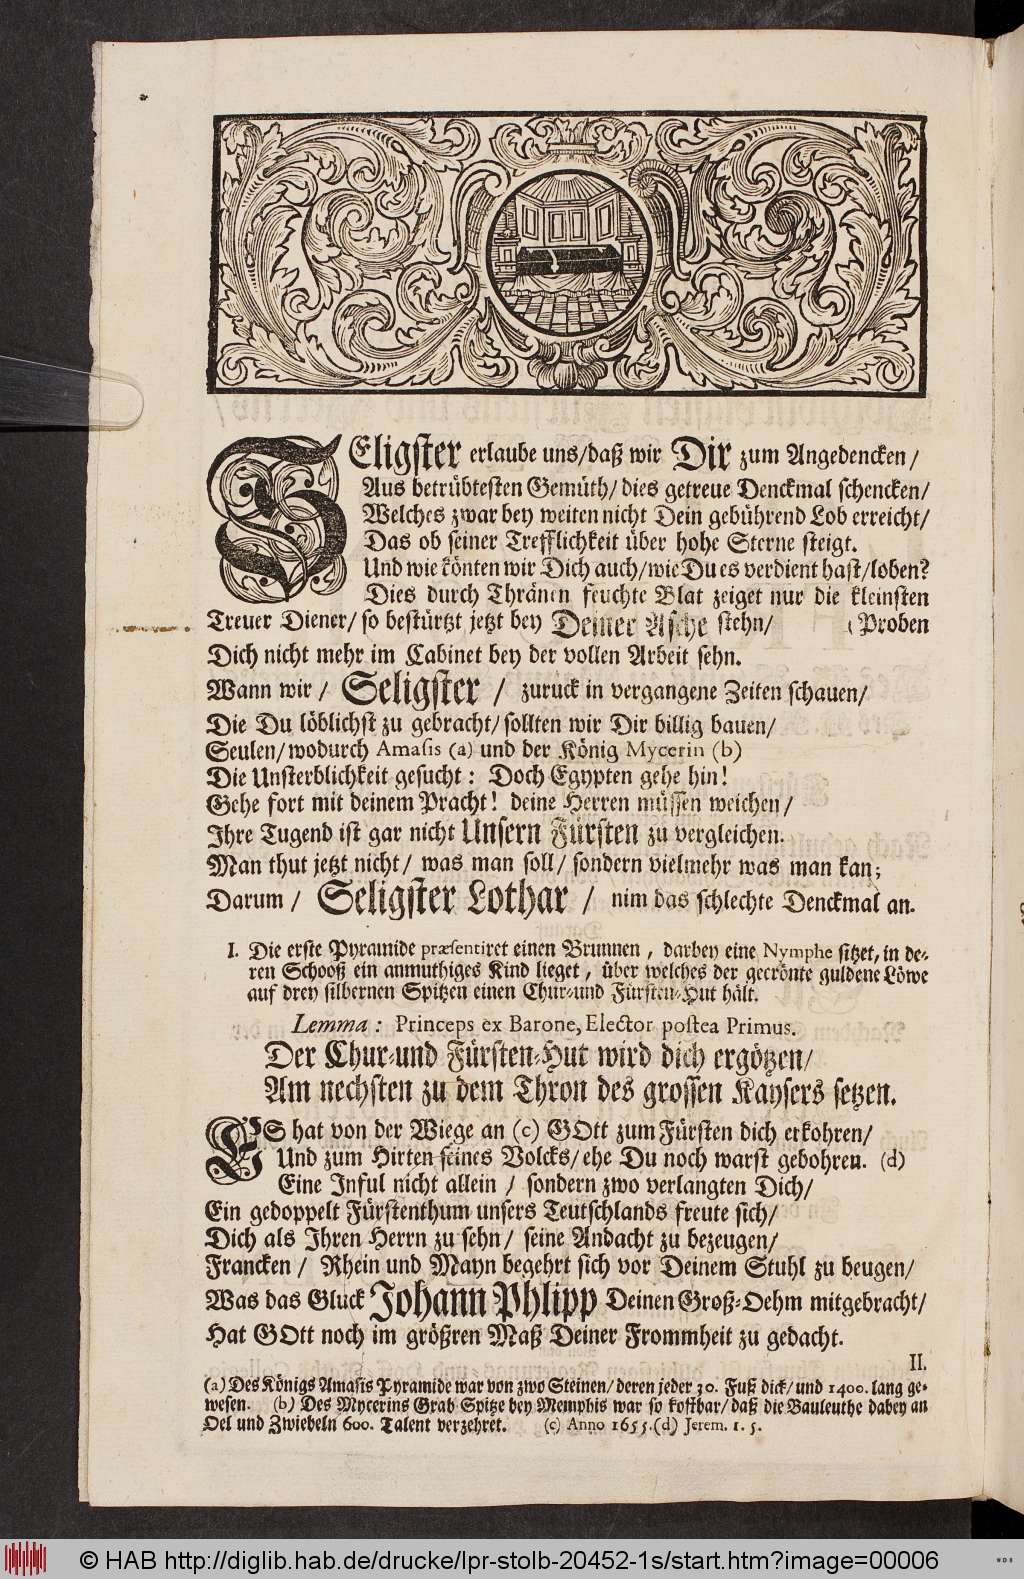 SEligster erlaube uns/daß wir Dir zum Angedencken/
Aus betrübtesten Gemüth/dies getreue Denckmal schencken/
Welches zwar bey weiten nicht Dein gebührend Lob erreicht/
Das ob seiner Trefflichkeit über hohe Sterne steigt.
Und wie könten wir Dich auch/wie Du es verdient hast/loben?
Dies durch Thränen feuchte Blat zeiget nur die kleinsten
Treuer Diener/so bestürtzt jetzt bey Deiner Asche stehn/ (Proben
Dich nicht mehr im Cabinet bey der vollen Arbeit sehn.
Wann wir/ Seligster / zuruck in vergangene Zeiten schauen/
Die Du löblichst zu gebracht/sollten wir Dir billig bauen/
Seulen/wodurch Amasis (a) und der König Mycerin (b)
Die Unsterblichkeit gesucht: Doch Egypten gehe hin!
Gehe fort mit deinem Pracht! deine Herren müssen weichen/
Ihre Tugend ist gar nicht Unsern Fürsten zu vergleichen.
Man thut jetzt nicht/ was man soll/ sondern vielmehr was man kan;
Darum / Seligster Lothar / nim das schlechte Denckmal an.
I. Die erste Pyramide præsentiret einen Brunnen, darbey eine Nymphe sitzet, in de-
ren Schooß ein anmuthiges Kind lieget, über welches der gecrönte guldene Löwe
auf drey silbernen Spitzen einen Chur-und Fürsten-Hut hält.
Lemma: Princeps ex Barone, Elector postea Primus.
Der Chur-und Fürsten-Hut wird dich ergötzen/
Am nechsten zu dem Thron des grossen Kaysers setzen.
ES hat von der Wiege an (c) GOtt zum Fürsten dich erkohren/
Und zum Hirten seines Volcks/ehe Du noch warst gebohren. (d)
Eine Inful nicht allein / sondern zwo verlangten Dich/
Ein gedoppelt Fürstenthum unsers Teutschlands freute sich/
Dich als Ihren Herrn zu sehn/ seine Andacht zu bezeugen/
Francken / Rhein und Mayn begehrt sich vor Deinem Stuhl zu beugen/
Was das Gluck Johann Phlipp Deinen Groß-Oehm mitgebracht/
Hat GOtt noch im größren Maß Deiner Frommheit zu gedacht.
II.
(a) Des Königs Amasis Pyramide war von zwo Steinen/deren jeder 30. Fuß dick/und 1400. lang ge-
wesen. (b) Des Mycerins Grab Spitze bey Memphis war so kostbar/daß die Bauleuthe dabey an
Oel und Zwiebeln 600. Talent verzehret. (c) Anno 1655. (d) Jerem. 1. 5.
© HAB http://diglib.hab.de/drucke/lpr-stolb-20452-1s/start.htm?image=00006